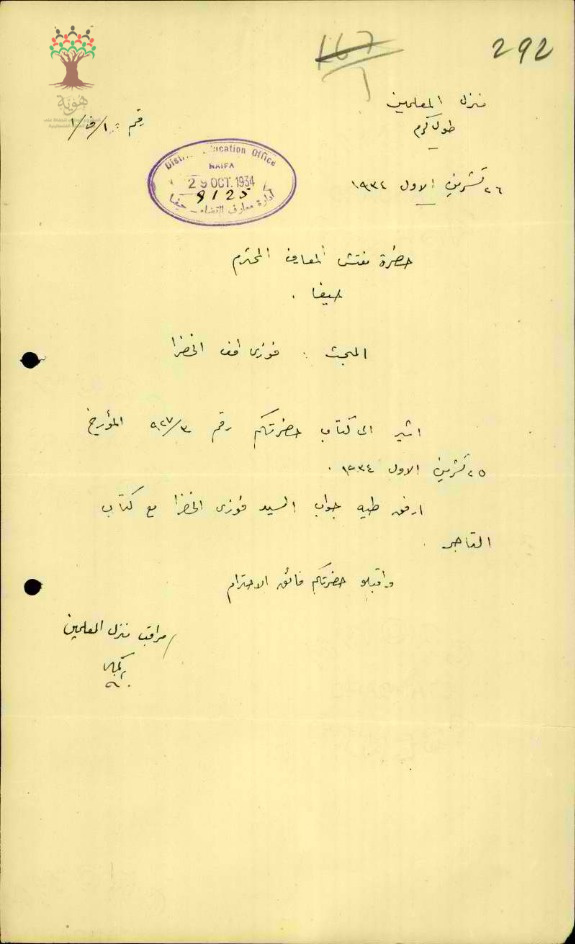 292
167
هوية
منزل المعلمين
طولكرم
رقم ١/ف/١
District Education Office
HAIFA
29 OCT. 1934
9125
ادارة معارف القضاء حيفا
٢٦ تشرين الاول ١٩٣٤
حضرة مفتش المعارف المحترم
حيفا .
المبحث : فوزى افند الخضرا
اشير الى كتاب حضرتكم رقم ٩٢٧/٣ المؤرخ
٢٥ تشرين الاول ١٩٣٤ .
ارفق طيه جواب السيد فوزى الخضرا مع كتاب
التاجر .
واقبلو حضرتكم فائق الاحترام
مراقب منزل المعلمين